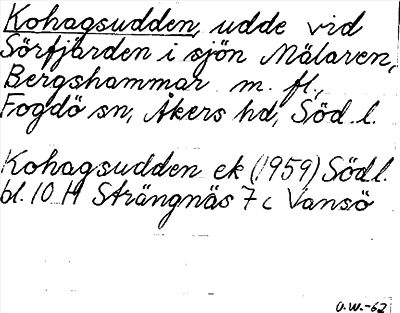 Kohagsudden, udde vid
Sörfjärden i sjön Mälaren,
Bergshammar m. fl.,
Fogdö sn, Åkers hd, Söd. l.
Kohagsudden ek (1959) Söd.l.
bl. 10 H Strängnäs 7 c Vansö
O.W.-62